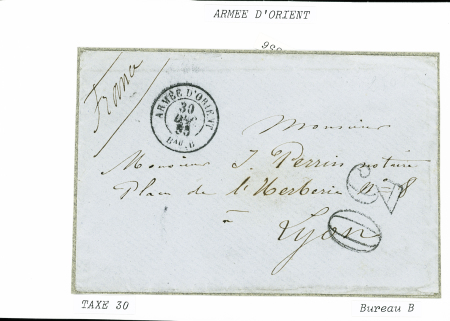 ARMEE D'ORIENT
Franco
ARMÉE D'ORIENT
30
DEC
55
BAU. B
Monsieur
Monsieur J. Perrin notaire
Place de l'Herberie n° 8
à
Lyon
TAXE 30
Bureau B